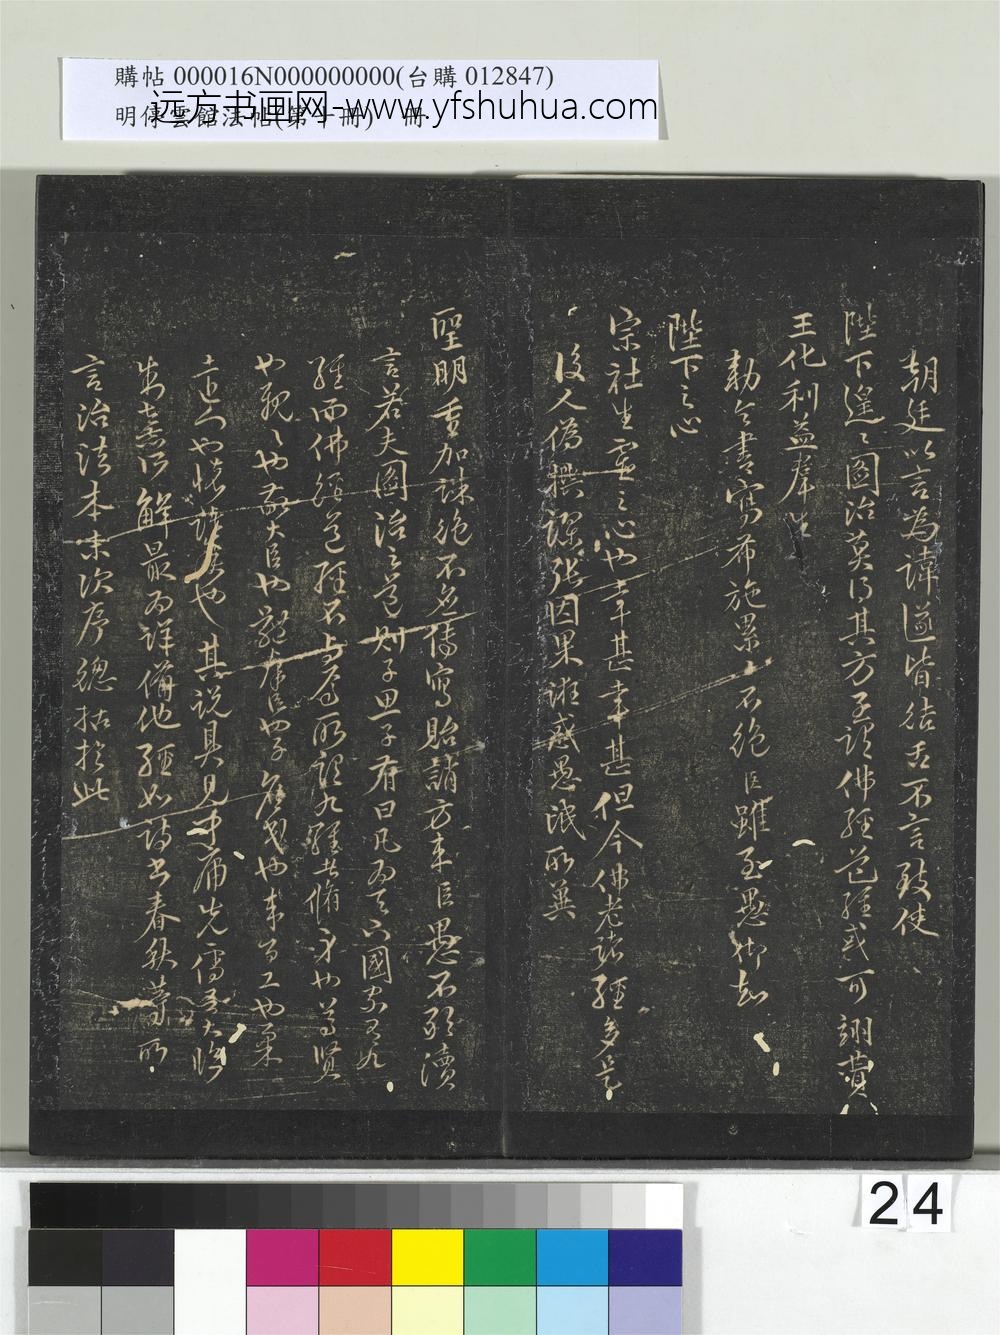 購帖 000016N000000000(台購 012847)
明停雲館法帖(第十冊) 冊
远方书画网-www.yfshuhua.com
朝廷以言為諱遂皆結舌不言致使
陛下遑〻圖治莫得其方至謂佛經道經或可翊贊
王化利益羣生
勅令書寫布施累年不絕臣雖至愚仰知
陛下之心
宗社生靈之心也幸甚幸甚但今佛老諸經多是
後人偽撰謬張因果誑惑愚氓所冀
聖明重加誅絕不令傳寫貽誚方來臣愚不勝瀆
言若夫圖治之道則子思子有曰凡為天下國家有九
經而佛經道經不與焉所謂九經者脩身也尊賢
也親〻也敬大臣也體羣臣也子庶民也來百工也柔
遠人也懷諸侯也其說具見中庸先儒大
朱熹所解最為詳備他經如詩書春秋等所
言治法本末次序總括於此
24